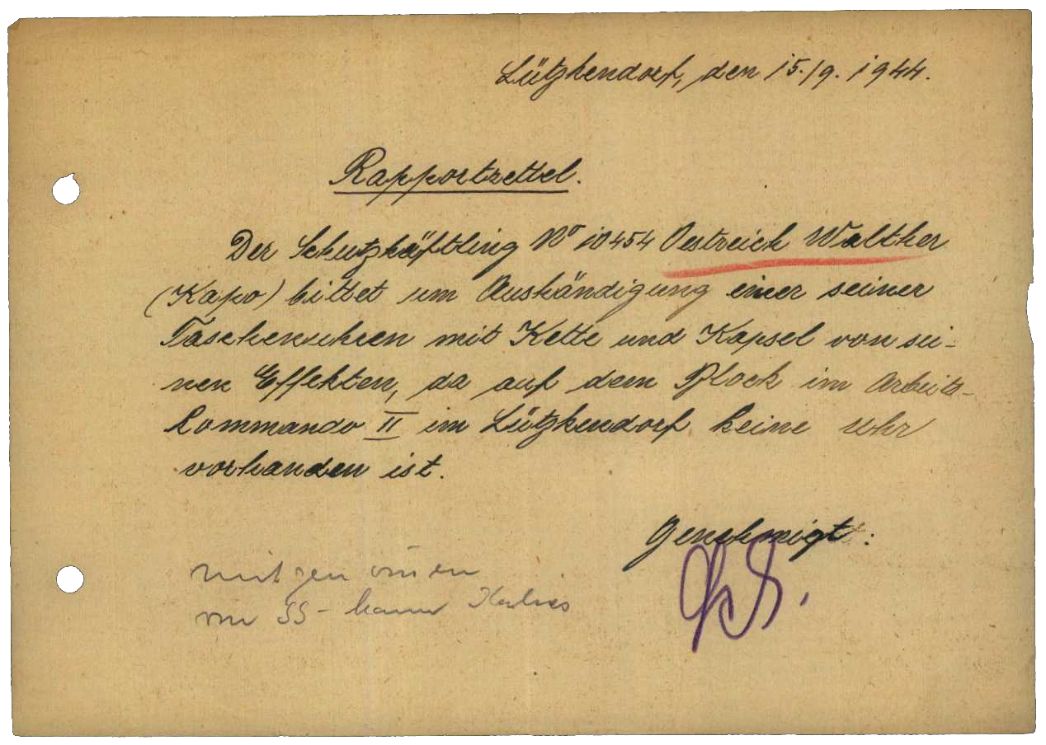 Lützkendorf, den 15./9. 1944.
Rapportzettel.
Der Schutzhäftling No 10454 Oestreich Walther
(Kapo) bittet um Aushändigung einer seiner
Taschenuhren mit Kette und Kapsel von sei-
nen Effekten, da auf dem Block im Arbeits-
Commando II im Lützkendorf keine Uhr
vorhanden ist.
Genehmigt:
mitgenommen
von SS-